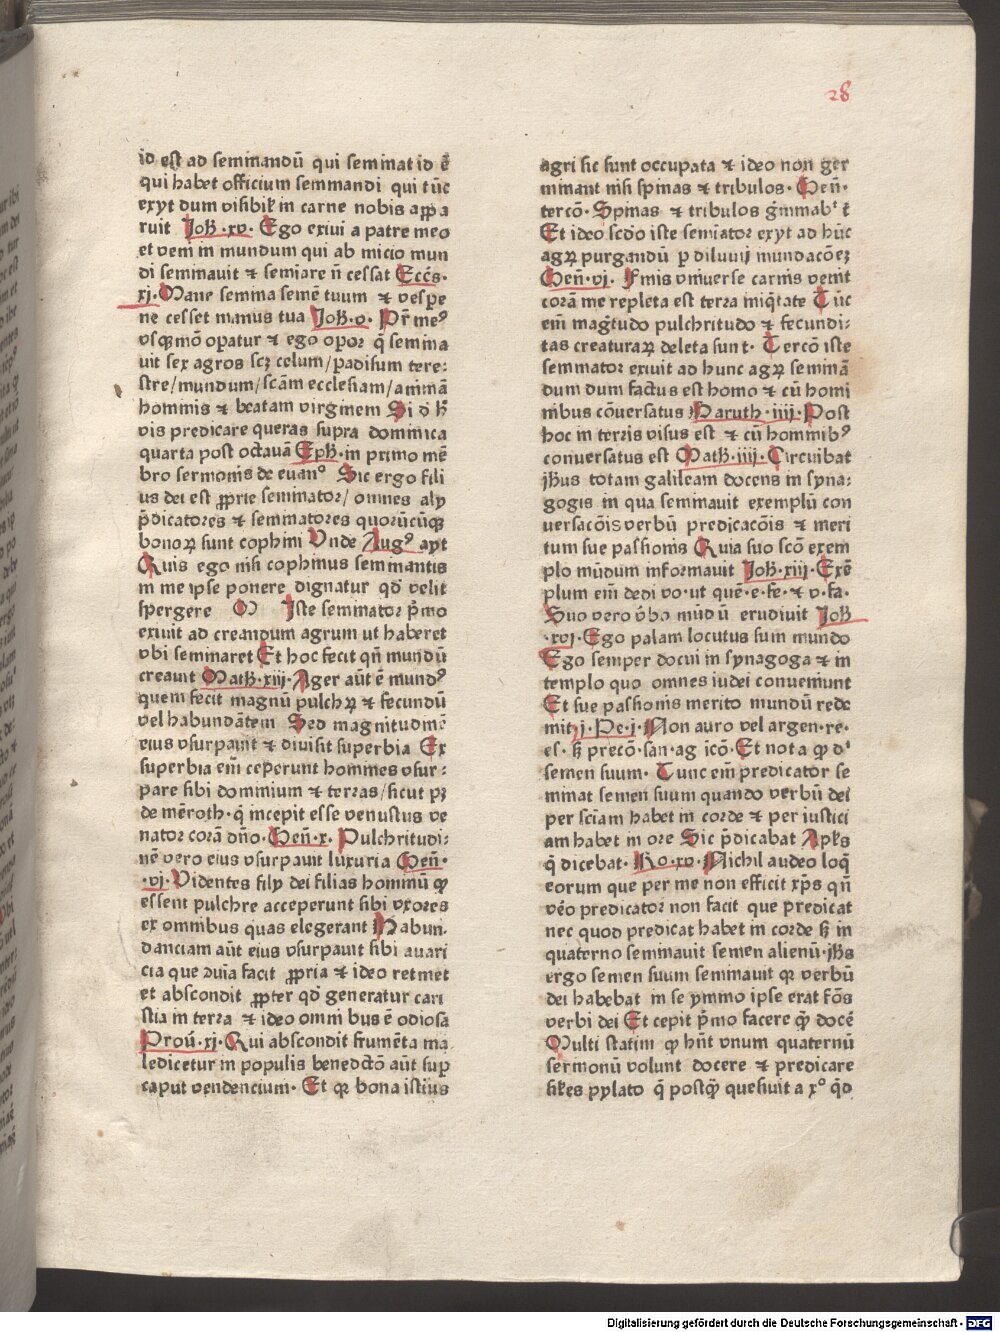 28
id est ad seminandū qui seminat id ē
qui habet officium seminandi qui tūc
exyt dum visibil' in carne nobis appa
ruit Joh̄ .xv. Ego exivi a patre meo
et veni in mundum qui ab inicio mun
di seminauit ⁊ semiare n̄ cessat Eccēs.
xj. Mane semina semē tuum ⁊ vespe
ne cesset manus tua Joh̄.v. Pr̄ meꝰ
vsqꝫ mō opatur ⁊ ego opor q̄ semina
uit sex agros scꝫ celum/padisum tere:
stre/mundum/scām ecclesiam/animā
hominis ⁊ beatam virginem Si ō h̄
vis predicare queras supra dominica
quarta post octauā Eph̄. in primo mē
bro sermonis de euan° Sic ergo fili
us dei est ꝓprie seminator/ omnes aly
p̄dicatores ⁊ seminatores quorūcūqꝫ
bonoꝝ sunt cophini Vnde Augꝰ ayt
Quis ego nisi cophinus seminantis
in me ipse ponere dignatur qd̄ velit
spergere M Iste seminator p̄mo
exiuit ad creandum agrum ut haberet
vbi seminaret Et hoc fecit qn̄ mundū
creauit Math̄.xiij. Ager aūt ē mundꝰ
quem fecit magnū pulchꝝ ⁊ fecundū
vel habundātem Sed magnitudinē
eius vsurpauit ⁊ diuisit superbia Ex
superbia em̄ ceperunt homines vsur:
pare sibi dominium ⁊ terras/sicut pꝫ
de mēroth. q̄ incepit esse venustus ve
nator corā dn̄o. Gen̄.x. Pulchritudi:
nē vero eius vsurpauit luxuria Gen̄.
.vj. Videntes fily dei filias hominū ꝙ
essent pulchre acceperunt sibi vxores
ex omnibus quas elegerant Habun.
danciam aūt eius vsurpauit sibi auari
cia que ꝛuia facit ꝓpria ⁊ ideo retinet
et abscondit ꝓpter qd̄ generatur cari
stia in terra ⁊ ideo omni bus ē odiosa
Proū.xj. Qui abscondit frumēta ma
ledicetur in populis benedctō aūt sup
caput vendencium. Et qꝛ bona istius
agri sic sunt occupata ⁊ ideo non ger
minant nisi spinas ⁊ tribulos. Gen̄.
tercō. Spinas ⁊ tribulos g̃minabᵗ t̄
Et ideo scd̄o iste semiator exyt ad hūc
agꝝ purgandū p diluuij mundacōeꝫ
Gen̄.vj. Finis vniuerse carnis venit
corā me repleta est terra iniq̄tate Tūc
em̄ mag̃tudo pulchritudo ⁊ fecundi:
tas creaturaꝝ deleta sunt. Tercō iste
seminator exiuit ad hunc agꝝ seminā
dum dum factus est homo ⁊ cū homi
nibus cōuersatus Baruth.iiij. Post
hoc in terris visus est ⁊ cū hominibꝰ
conuersatus est Math̄.iiij. Circuibat
jh̄us totam galileam docens in syna:
gogis in qua seminauit exemplū con
uersacōis verbū predicacōis ⁊ meri
tum sue passionis Quia suo scō exem
plo mūdum informauit Joh̄.xiij. Exē
plum em̄ dedi vo.ut quē.e.fe.⁊ v.fa.
Suo vero v̄bo mūdū erudiuit Joh̄
.xvj. Ego palam locutus sum mundo
Ego semper docui in synagoga ⁊ in
templo quo omnes iudei conueniunt
Et sue passionis merito mundū rede
mit j. Pe. j. Non auro vel argen.re.
es. sꝫ precō.san.ag icō. Et nota ꝙ dᵗ
semen suum. Tunc em̄ predicator se
minat semen suum quando verbū dei
per sciam habet in corde ⁊ per iustici
am habet in ore Sic p̄dicabat Apl̄s
q̄ dicebat. Ro.xv. Nichil audeo loq̄
eorum que per me non efficit xp̄s qn̄
vēo predicator non facit que predicat
nec quod predicat habet in corde sꝫ in
quaterno seminauit semen alienū. jh̄s
ergo semen suum seminauit qꝛ verbū
dei habebat in se ymmo ipse erat fōs
verbi dei Et cepit p̄mo facere ꝙ̄ docē
Multi statim ꝙ hn̄t vnum quaternū
sermonū volunt docere ⁊ predicare
sil'es pylato q̄ postꝙ̄ quesiuit a x° q̄d
Digitalisierung gefördert durch die Deutsche Forschungsgemeinschaft - DFG